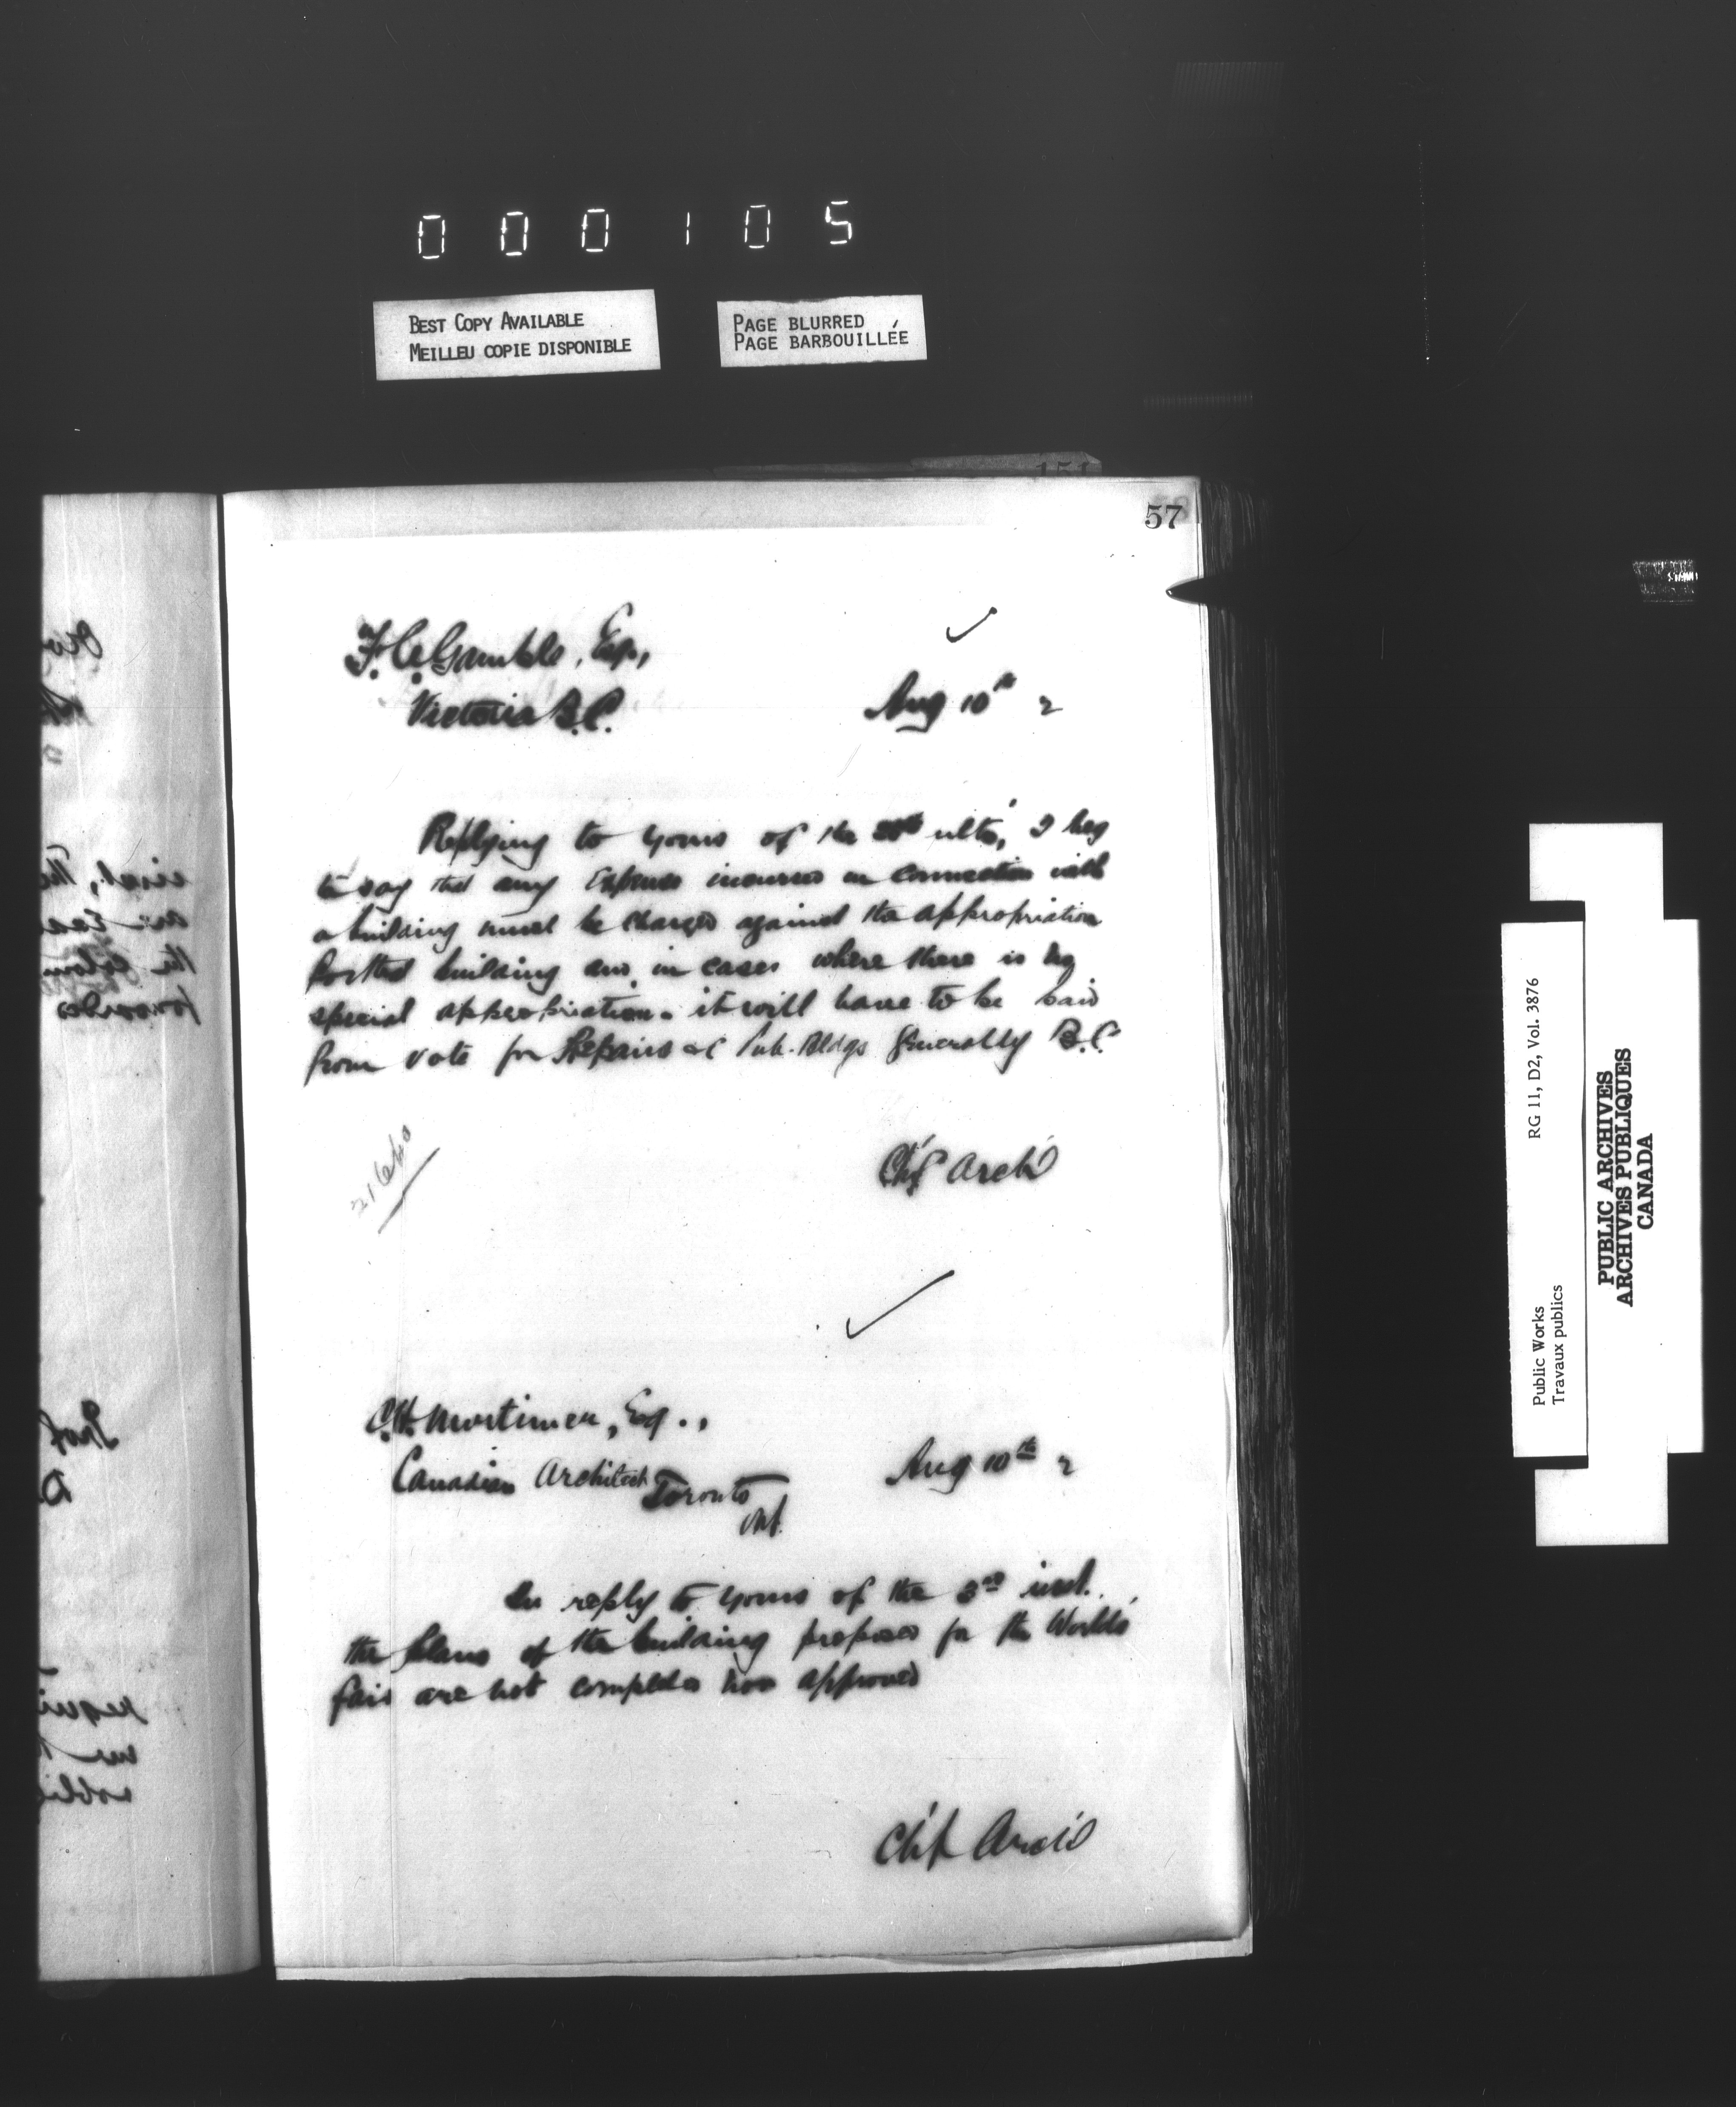 000105
BEST COPY AVAILABLE
MEILLEU COPIE DISPONIBLE
PAGE BLURRED
PAGE BARBOUILLÉE
151
57
F. C. Gamble, Esq.,
Victoria B.C.
Aug 10th 2
Replying to yours of the ulto, I beg
to say that any Expense incurred in connection with
a building must be charged against the appropriation
for that building and, in cases where there is no
special appropriation it will have to be paid
from vote for Repairs &c Pub. Bldgs Generally B.C.
Ch'f Arch't
C.H. Mortimer, Esq.,
Canadian Architect Toronto
Ont.
Aug 10th 2
In reply to yours of the 3rd inst.,
the plans of the building proposed for the Worlds
fair are not completed nor approved
Ch'f Arch't
Public Works
Travaux publics
RG 11, D2, Vol. 3876
PUBLIC ARCHIVES
ARCHIVES PUBLIQUES
CANADA